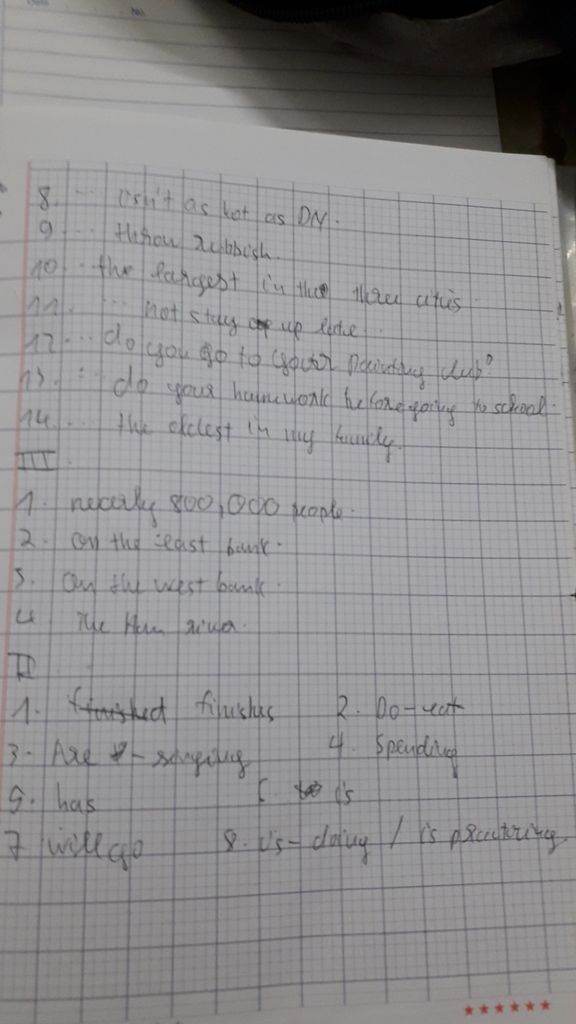 8. ... isn't as hot as DN.
9 ... throw rubbish.
10 .. the largest in the three cities
11. ... not stay up late.
12 ... do you go to your painting club?
13. .. do your homework before going to school.
14. ... the oldest in my family.
III
1. nearly 800,000 people.
2. On the east bank.
3. On the west bank.
4 The Han river.
II
1. finished finishes 2. Do - eat
3. Are - singing 4. Spending
5. has is
7 will go 8. is - doing / is practising